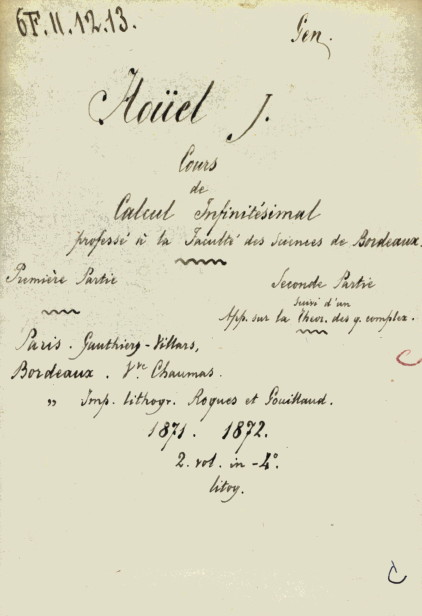 6F.II.12.13.
Gen.
Hoüel J.
Cours
de
Calcul Infinitésimal
professé à la Faculté des Sciences de Bordeaux.
Première Partie
Seconde Partie
suivi d'un
App. sur la Théor. des q. complex.
Paris. Gauthiers-Villars,
Bordeaux. Vve Chaumas.
" Imp. lithogr. Roques et Gouillaud.
1871. 1872.
2. vol. in-4°.
litog.